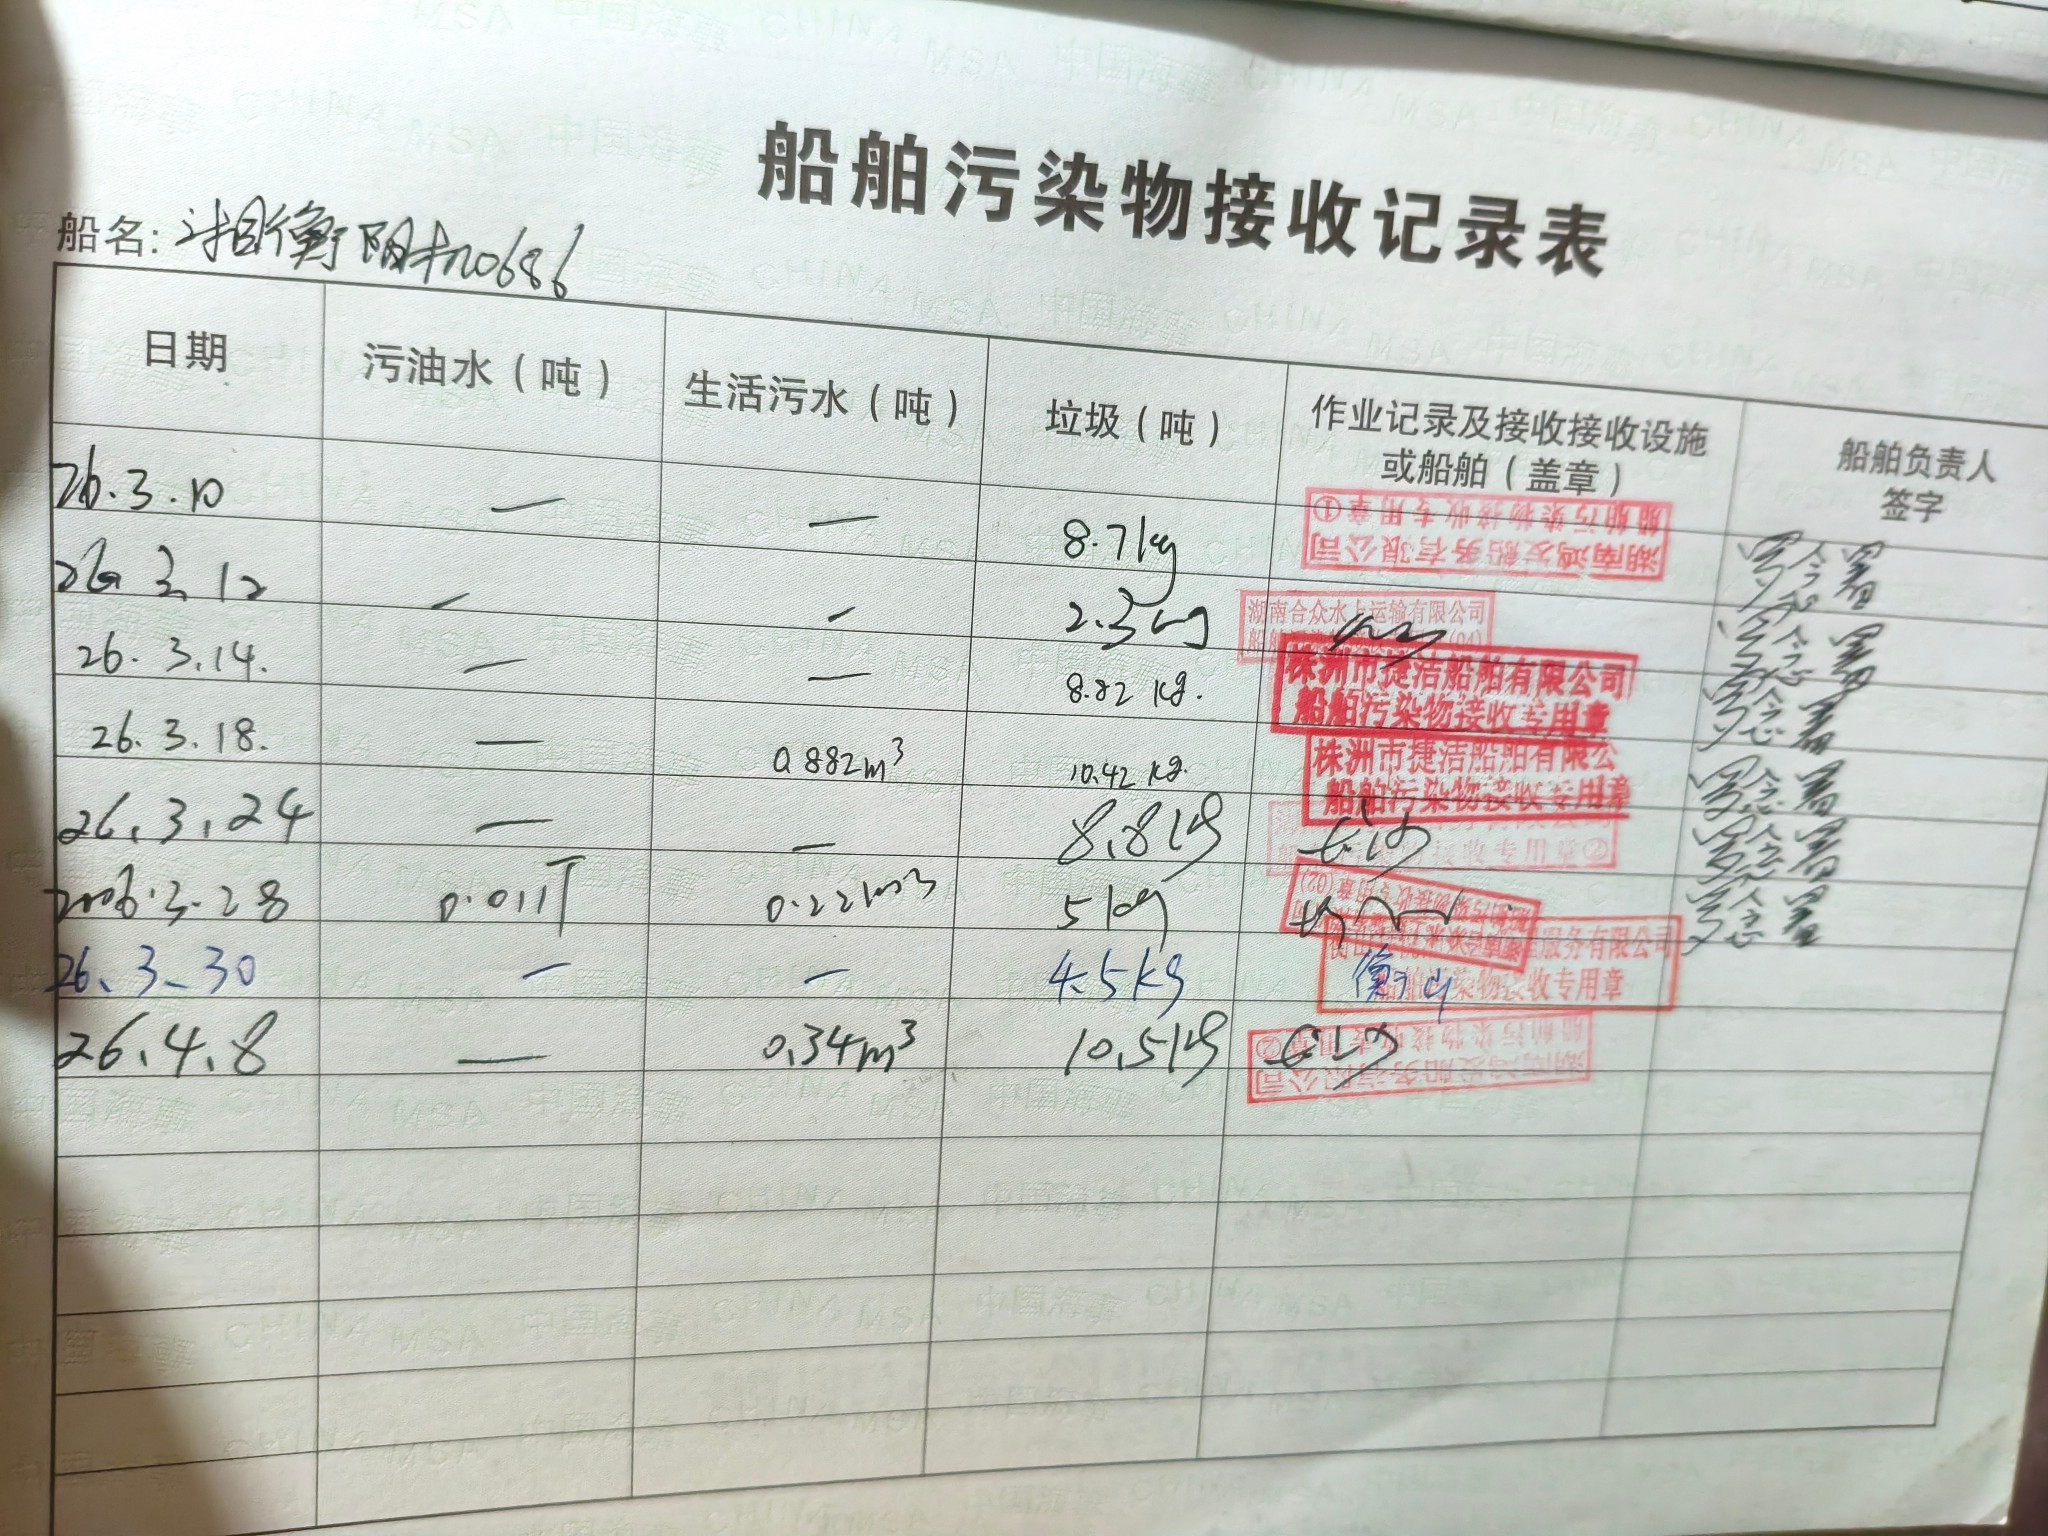 船舶污染物接收记录表
船名: 湘衡阳机0686
日期 污油水（吨） 生活污水（吨） 垃圾（吨） 作业记录及接收接收设施或船舶（盖章） 船舶负责人签字
26.3.10 — — 8.7kg 湖南鸿发船务有限公司 船舶污染物接收专用章①
26.3.12 — — 2.3kg 湖南合众水上运输有限公司
26.3.14. — — 8.82 kg. 株洲市捷洁船舶有限公司 船舶污染物接收专用章
26.3.18. — 0.882m³ 10.42 kg. 株洲市捷洁船舶有限公 船舶污染物接收专用章
26.3.24 — — 8.8kg 接收专用章②
2006.3.28 0.011T 0.22m³ 5kg 船舶污染物接收专用章(02)
26.3.30 — — 4.5kg 衡山 服务有限公司 船舶污染物接收专用章
26.4.8 — 0.34m³ 10.5kg 湖南鸿发船务有限公司 船舶污染物接收专用章②